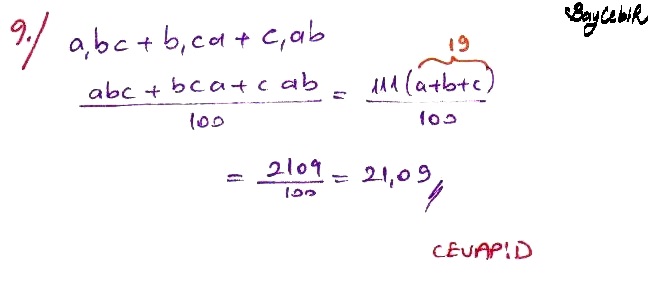 BaycebiR
9./ a,bc + b,ca + c,ab
19
abc + bca + cab / 100 = 111(a+b+c) / 100
= 2109 / 100 = 21,09 //
CEVAP:D